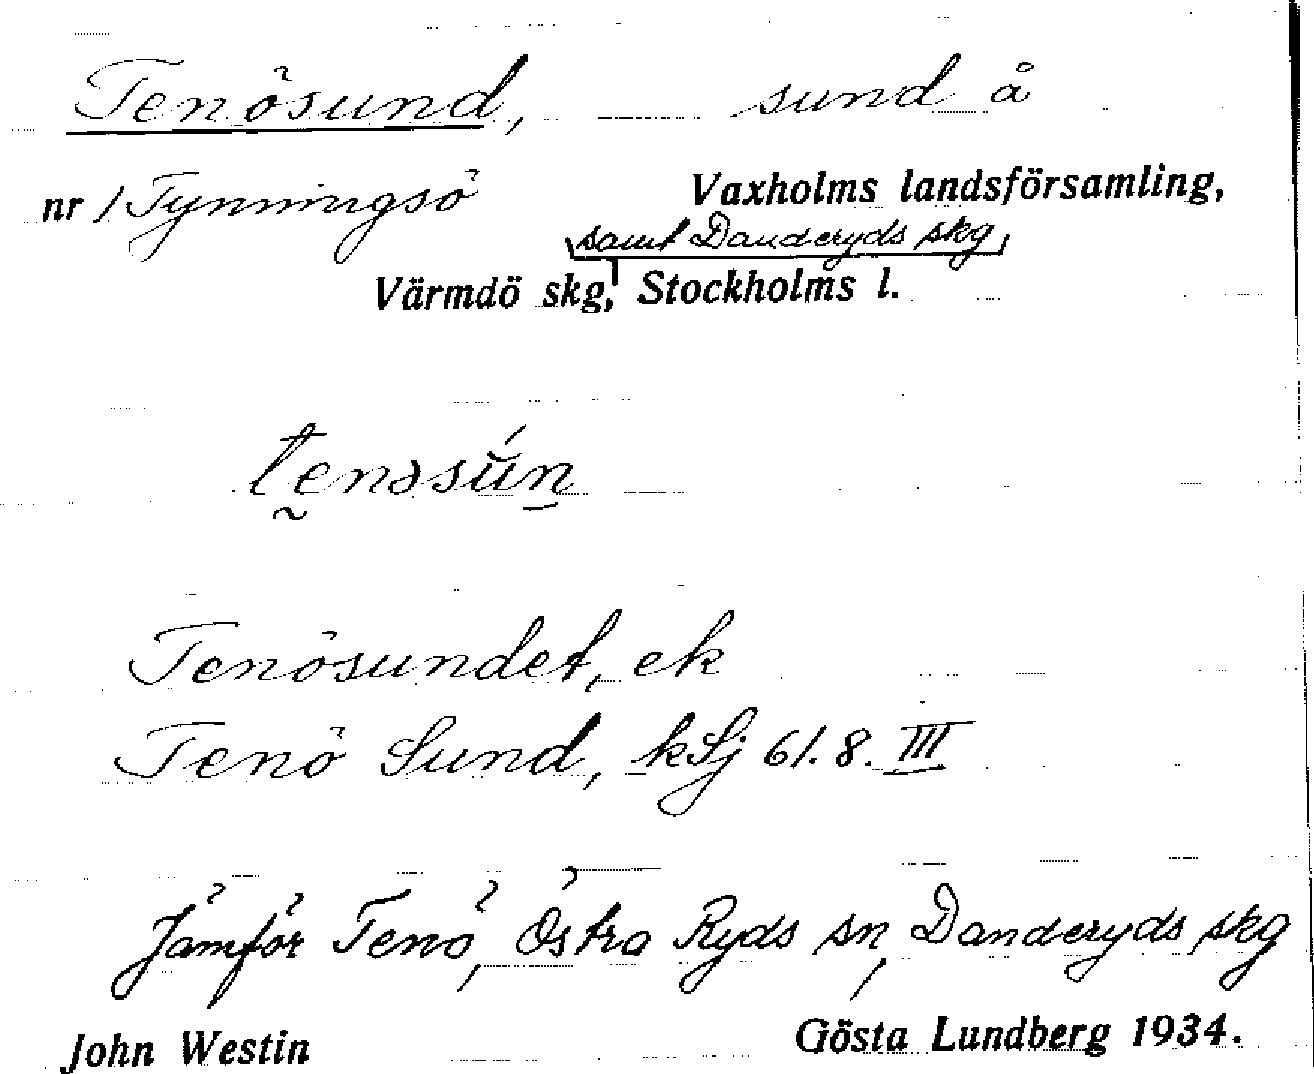 Tenösund, sund å
nr 1 Tynningsö Vaxholms landsförsamling,
samt Danderyds skg,
Värmdö skg, Stockholms l.
tenəsún
Tenösundet, ek
Tenö Sund, kSj 61.8.III
Jämför Tenö, Östra Ryds sn, Danderyds skg
John Westin Gösta Lundberg 1934.